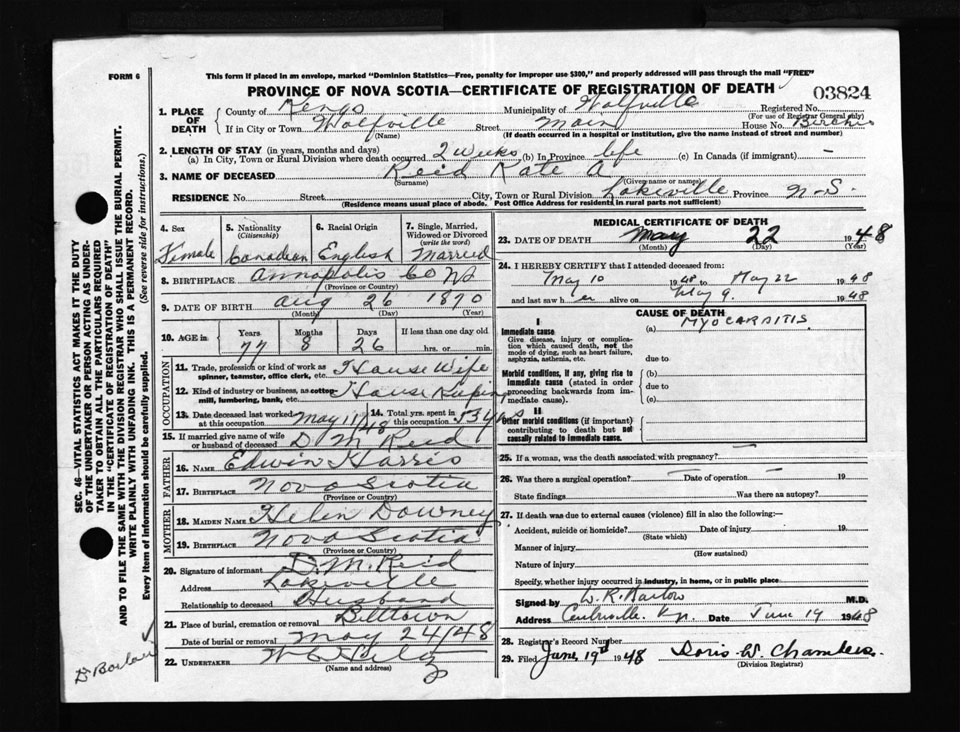 FORM 6
This form if placed in an envelope, marked "Dominion Statistics—Free, penalty for improper use $300," and properly addressed will pass through the mail "FREE"
PROVINCE OF NOVA SCOTIA—CERTIFICATE OF REGISTRATION OF DEATH
03824
1. PLACE OF DEATH
County of Kings Municipality of Wolfville Registered No.
(For use of Registrar General only)
If in City or Town Wolfville Street Main House No.
(Name) (If death occurred in a hospital or institution, give the name instead of street and number)
2. LENGTH OF STAY (in years, months and days)
(a) In City, Town or Rural Division where death occurred 2 weeks (b) In Province life (c) In Canada (if immigrant) –
3. NAME OF DECEASED Reid Kate A
(Surname) (Given name or names)
RESIDENCE No. Street City, Town or Rural Division Lakeville Province N-S.
(Residence means usual place of abode. Post Office Address for residents in rural parts not sufficient)
4. Sex Female
5. Nationality (Citizenship) Canadian
6. Racial Origin English
7. Single, Married, Widowed or Divorced (write the word) Married
8. BIRTHPLACE Annapolis Co NS
(Province or Country)
9. DATE OF BIRTH Aug 26 1870
(Month) (Day) (Year)
10. AGE in Years Months Days If less than one day old
77 8 26 hrs. or min.
OCCUPATION
11. Trade, profession or kind of work as spinner, teamster, office clerk, etc. House Wife
12. Kind of industry or business, as cotton-mill, lumbering, bank, etc. House Keeping
13. Date deceased last worked at this occupation May 1/48
14. Total yrs. spent in this occupation 53 yrs
15. If married give name of wife or husband of deceased D M Reid
FATHER
16. NAME Edwin Harris
17. BIRTHPLACE Nova Scotia
(Province or Country)
MOTHER
18. MAIDEN NAME Helen Downey
19. BIRTHPLACE Nova Scotia
(Province or Country)
20. Signature of informant D. M. Reid
Address Lakeville
Relationship to deceased Husband
21. Place of burial, cremation or removal Billtown
Date of burial or removal May 24/48
22. UNDERTAKER
(Name and address)
MEDICAL CERTIFICATE OF DEATH
23. DATE OF DEATH May 22 1948
(Month) (Day) (Year)
24. I HEREBY CERTIFY that I attended deceased from:
May 10 1948 to May 22 1948
and last saw h er alive on May 9. 1948
CAUSE OF DEATH
I
Immediate cause (a) MYOCARDITIS
Give disease, injury or complication which caused death, not the mode of dying, such as heart failure, asphyxia, asthenia, etc.
due to
Morbid conditions, if any, giving rise to immediate cause (stated in order proceeding backwards from immediate cause).
(b)
due to
(c)
II
Other morbid conditions (if important) contributing to death but not causally related to immediate cause.
25. If a woman, was the death associated with pregnancy? –
26. Was there a surgical operation? – Date of operation – 19
State findings Was there an autopsy?
27. If death was due to external causes (violence) fill in also the following:—
Accident, suicide or homicide? Date of injury 19
(State which)
Manner of injury
(How sustained)
Nature of injury
Specify, whether injury occurred in industry, in home, or in public place
Signed by M.D.
Address Centreville, Date June 19 1948
28. Registrar's Record Number
29. Filed June 19th 1948 Doris W. Chambers.
(Division Registrar)
SEC. 46—VITAL STATISTICS ACT MAKES IT THE DUTY
OF THE UNDERTAKER OR PERSON ACTING AS UNDER-
TAKER TO OBTAIN ALL THE PARTICULARS REQUIRED
IN THE "CERTIFICATE OF REGISTRATION OF DEATH"
AND TO FILE THE SAME WITH THE DIVISION REGISTRAR WHO SHALL ISSUE THE BURIAL PERMIT.
WRITE PLAINLY WITH UNFADING INK. THIS IS A PERMANENT RECORD.
Every item of information should be carefully supplied. (See reverse side for instructions.)